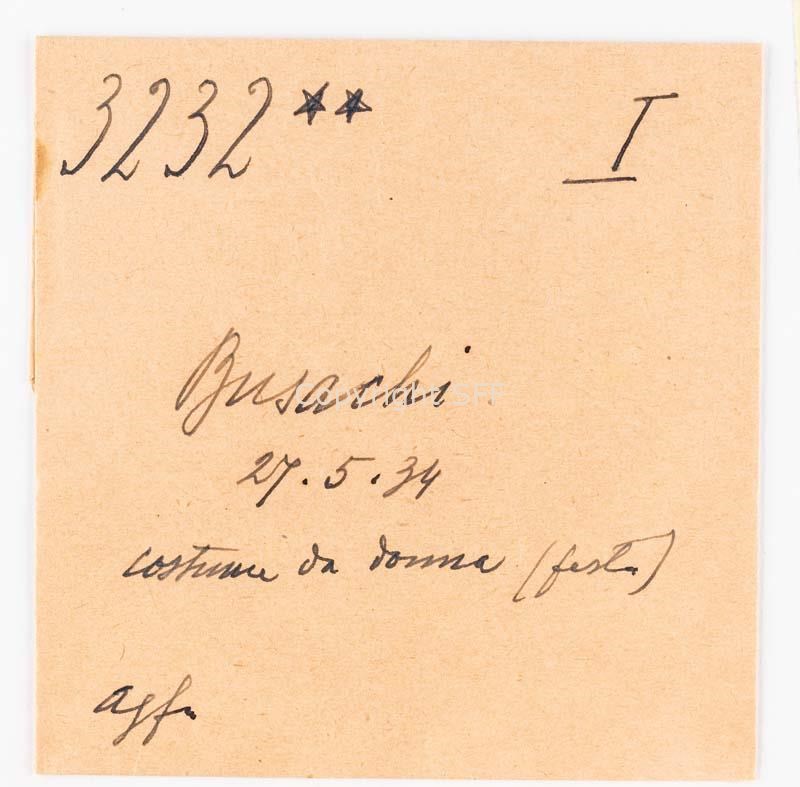 3232** I
Busachi
Copyright SFF
27.5.34
costume da donna (festa)
agfa